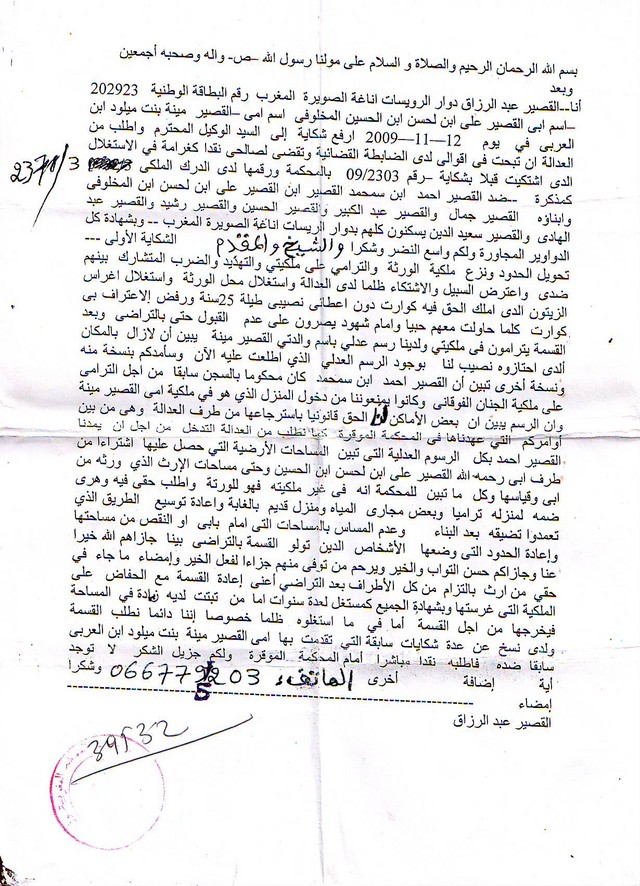 بسم الله الرحمان الرحيم والصلاة و السلام على مولنا رسول الله –ص- واله وصحبه أجمعين
وبعد
أنا---القصير عبد الرزاق دوار الرويسات اناغة الصويرة المغرب رقم البطاقة الوطنية 202923
–اسم ابى القصير على ابن لحسن ابن الحسين المخلوفى اسم امى –القصير مينة بنت ميلود ابن
العربى في يوم 12—11—2009 ارفع شكاية إلى السيد الوكيل المحترم واطلب من
العدالة ان تبحت فى اقوالى لدى الضابطة القضائية وتقضى لصالحى نقدا كغرامة في الاستغلال
الدى اشتكيت قبلا بشكاية –رقم 09/2303 بالمحكمة ورقمها لدى الدرك الملكى 3/2371
كمذكرة --ضد القصير احمد ابن سمحمد القصير ابن القصير على ابن لحسن ابن المخلوفى
وابناؤه القصير جمال والقصير عبد الكبير والقصير الحسين والقصير رشيد والقصير عبد
الهادى والقصير سعيد الدين يسكنون كلهم بدوار الريسات اناغة الصويرة المغرب -- وبشهادة كل
الدواوير المجاورة ولكم واسع النضر وشكرا والشيخ والمقدم الشكاية الأولى ---
تحويل الحدود ونزع ملكية الورثة والترامي على ملكيتي والتهديد والضرب المتشارك بينهم
ضدى واعترض السبيل والاشتكاء ظلما لدى العدالة واستغلال محل الورثة واستغلال اغراس
الزيتون الدى املك الحق فيه كوارت دون اعطائى نصيبى طيلة 25سنة ورفض الإعتراف بى
كوارت كلما حاولت معهم حبيا وامام شهود يصرون على عدم القبول حتى بالتراضى وبعد
القسمة يترامون فى ملكيتي ولدينا رسم عدلي باسم والدتي القصير مينة يبين أن لازال بالمكان
ألدى احتازوه نصيب لنا بوجود الرسم العدلي الذي اطلعت عليه الآن وسأمدكم بنسخة منه
ونسخة أخرى تبين أن القصير احمد ابن سمحمد كان محكوما بالسجن سابقا من اجل الترامى
على ملكية الجنان الفوقانى وكانوا يمنعوننا من دخول المنزل الذي هو في ملكية امى القصير مينة
وان الرسم يبين ان بعض الأماكن لنا الحق قانونيا باسترجاعها من طرف العدالة وهى من بين
أوامركم التي عهدناها في المحكمة الموقرة كما نطلب من العدالة التدخل من اجل ان يمدنا
القصير احمد بكل الرسوم العدلية التى تبين المساحات الأرضية التي حصل عليها اشتراءا من
طرف أبى رحمه الله القصير على ابن لحسن ابن الحسين وحتى مساحات الإرث الذي ورثه من
ابى وقياسها وكل ما تبين للمحكمة انه فى غير ملكيته فهو للورتة واطلب حقى فيه وهرى
ضمه لمنزله تراميا وبعض مجارى المياه ومنزل قديم بالغابة واعادة توسيع الطريق الذي
تعمدوا تضيقه بعد البناء وعدم المساس بالمساحات التى امام بابى او النقص من مساحتها
وإعادة الحدود التى وضعها الأشخاص الدين تولو القسمة بالتراضى بينا جازاهم الله خيرا
عنا وجازاكم حسن التواب والخير ويرحم من توفى منهم جزاءا لفعل الخير وإمضاء ما جاء في
حقي من ارث بالتزام من كل الأطراف بعد التراضي أعنى إعادة القسمة مع الحفاض على
الملكية التى غرستها وبشهادة الجميع كمستغل لعدة سنوات اما من تبتت لديه زيادة في المساحة
فيخرجها من اجل القسمة أما في ما استغلوه ظلما خصوصا إننا دائما نطلب القسمة
ولدى نسخ عن عدة شكايات سابقة التي تقدمت بها امى القصير مينة بنت ميلود ابن العربى
سابقا ضده فاطلبه نقدا مباشرا أمام المحكمة الموقرة ولكم جزيل الشكر لا توجد
أية إضافة أخرى الهاتف: 03 0667795 وشكرا
إمضاء ---------------------------------
القصير عبد الرزاق